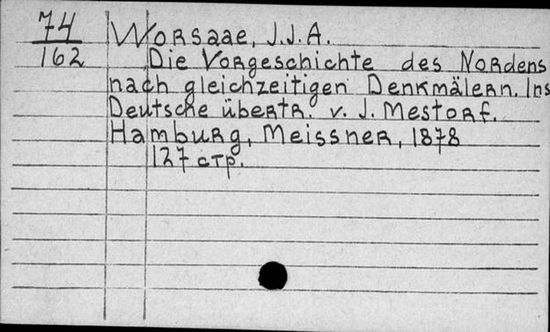 74
162
Worsaae, J.J.A.
Die Vorgeschichte des Nordens
nach gleichzeitigen Denkmälern. Ins
Deutsche übertr. v. J. Mestorf.
Hamburg, Meissner, 1878
127 стр.